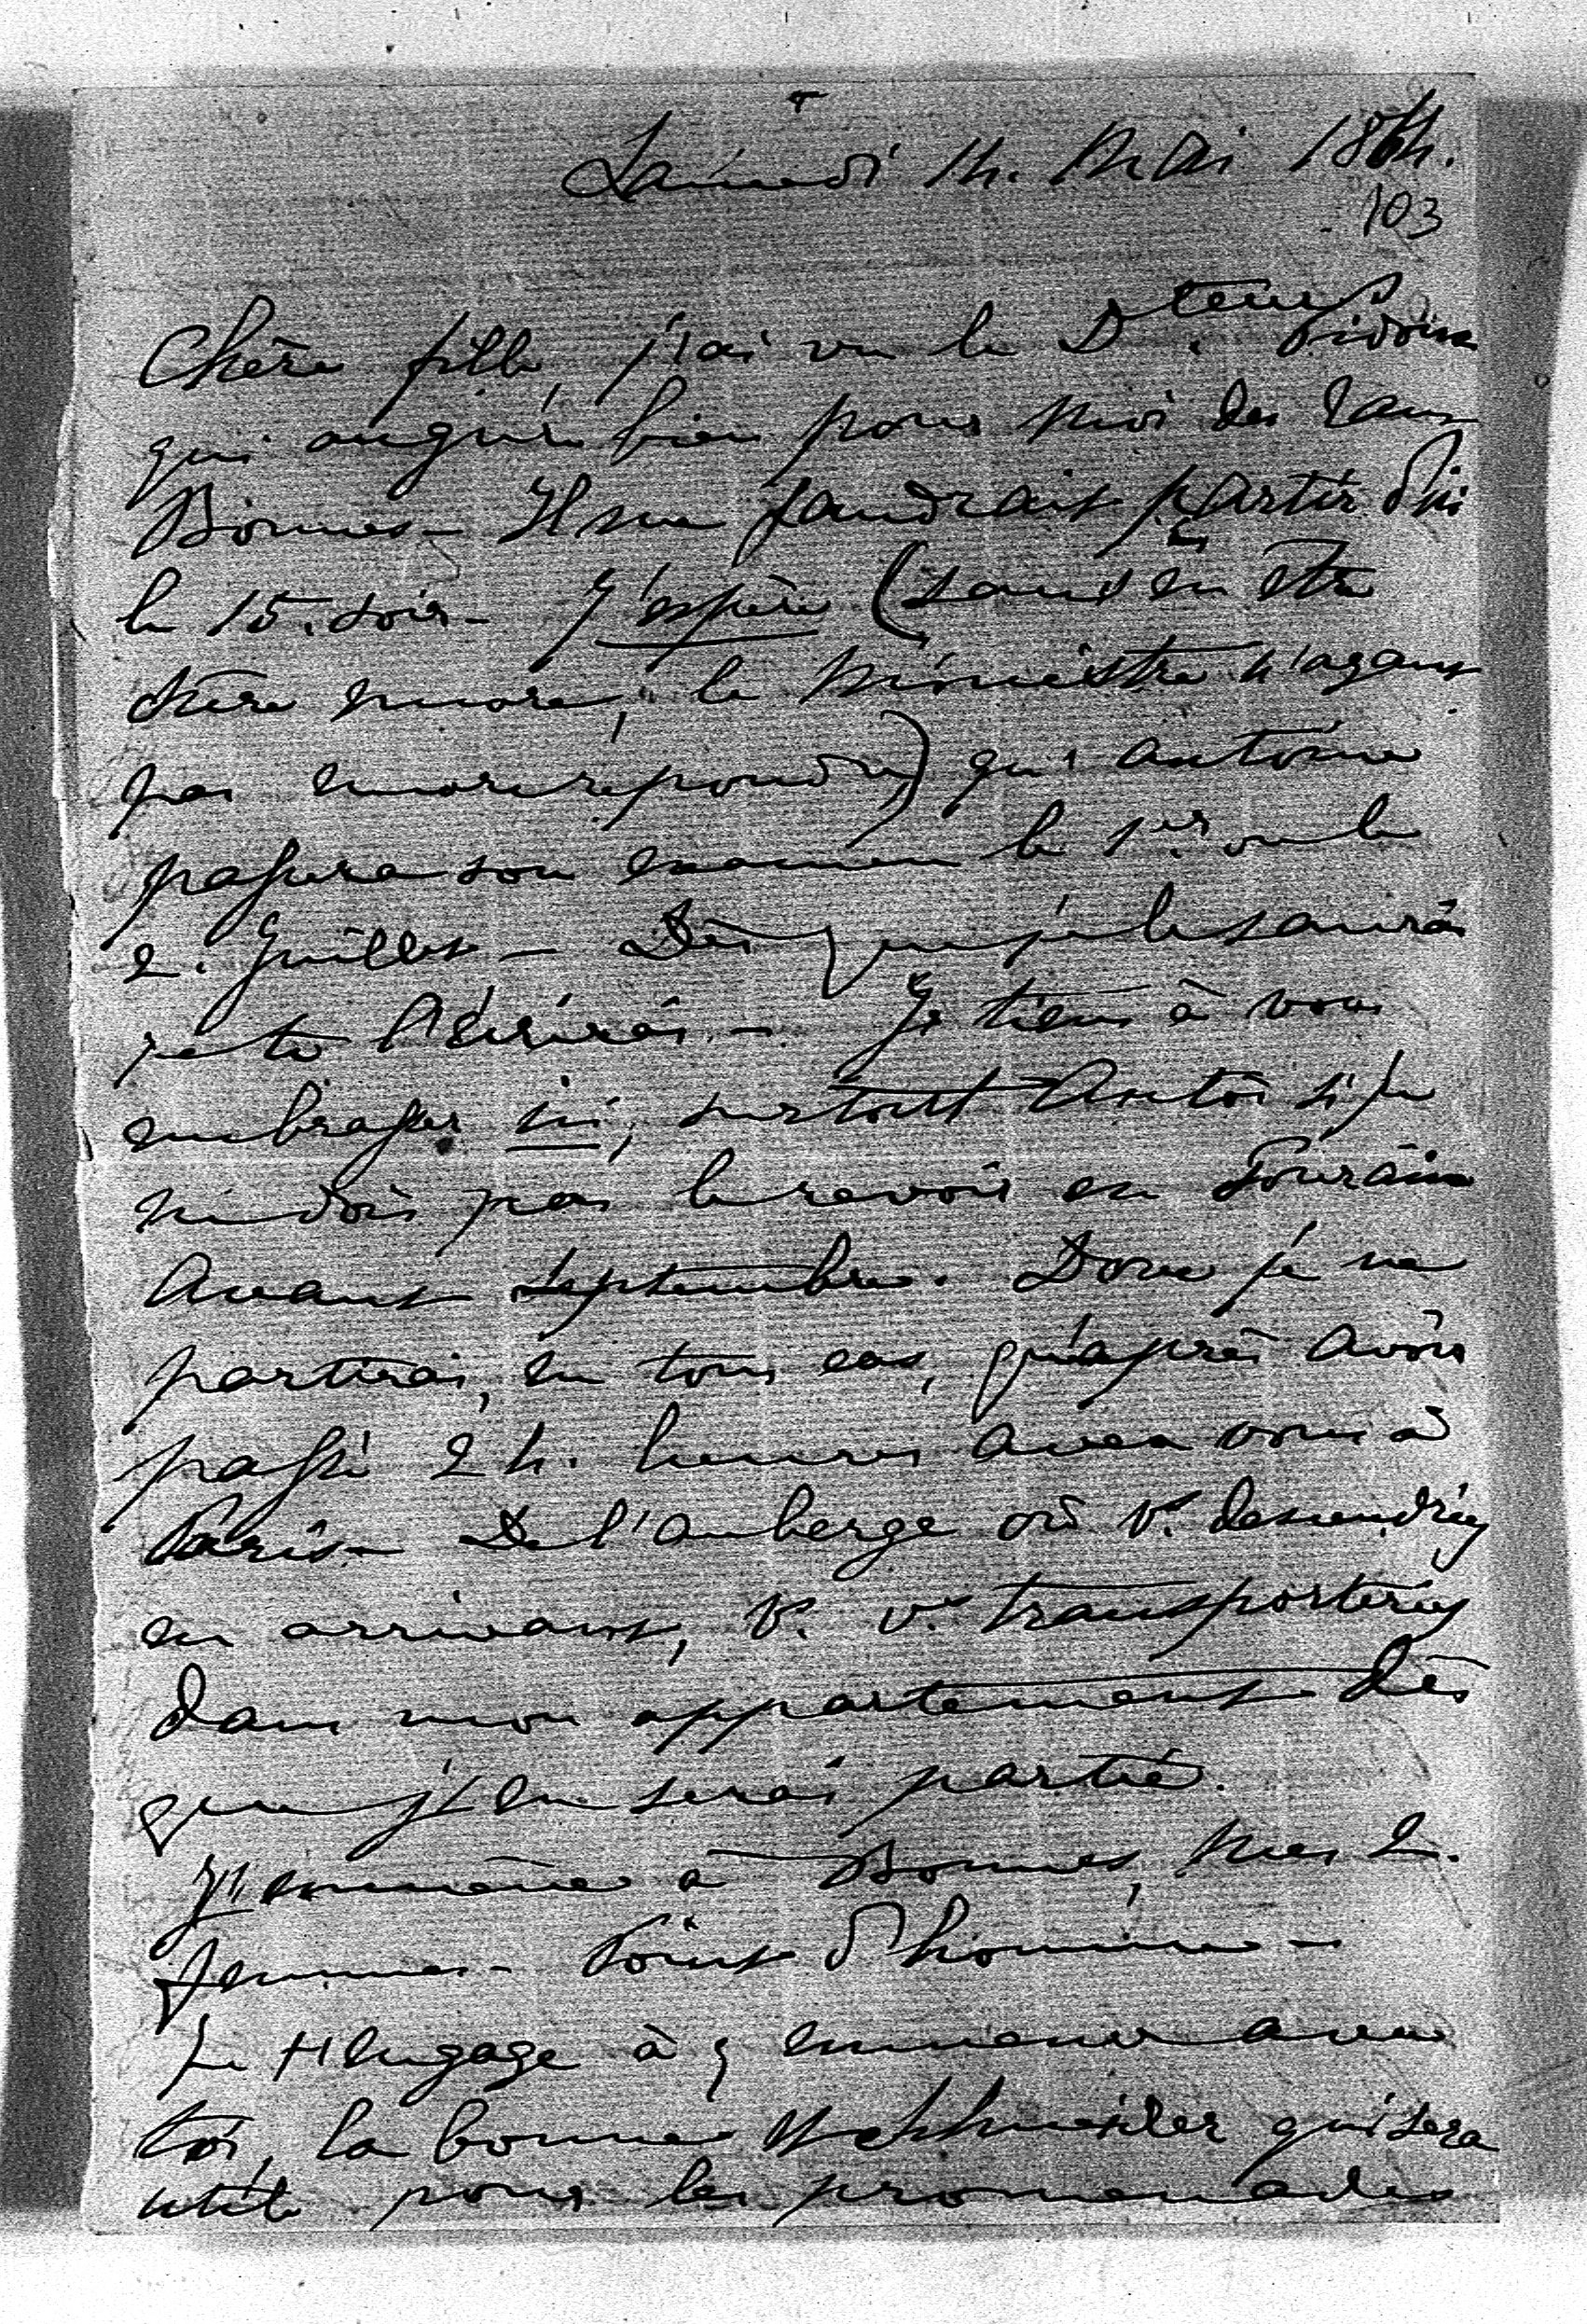 Samedi 14. Mai 1864.
103
Chère fille, j'ai vu le Dteur Pidoux
qui augure bien pour moi des Eaux
Bonnes – Il me faudrait partir d'ici
le 15. soir – J'espère (sans en être
sûre encore, le Ministre n'ayant
pas encore répondu,) qu'Antoine
passera son examen le 1er ou le
2. Juillet – Dès que je le saurai
je te l'écrirai – Je tiens à vous
embrasser ici, surtout Antoine si je
ne dois pas le revoir en Touraine
avant Septembre. Donc je ne
partirai, en tous cas, qu'après avoir
passé 24. heures avec vous à
Paris – De l'auberge où vs. descendrez
en arrivant, vs. vs. transporterez
dans mon appartement dès
que j'en serai partie.
J'emmène à Bonnes, mes 2.
femmes – Point d'homme –
Je t'engage à y emmener avec
toi, la bonne Schneider qui sera
utile pour les promenades